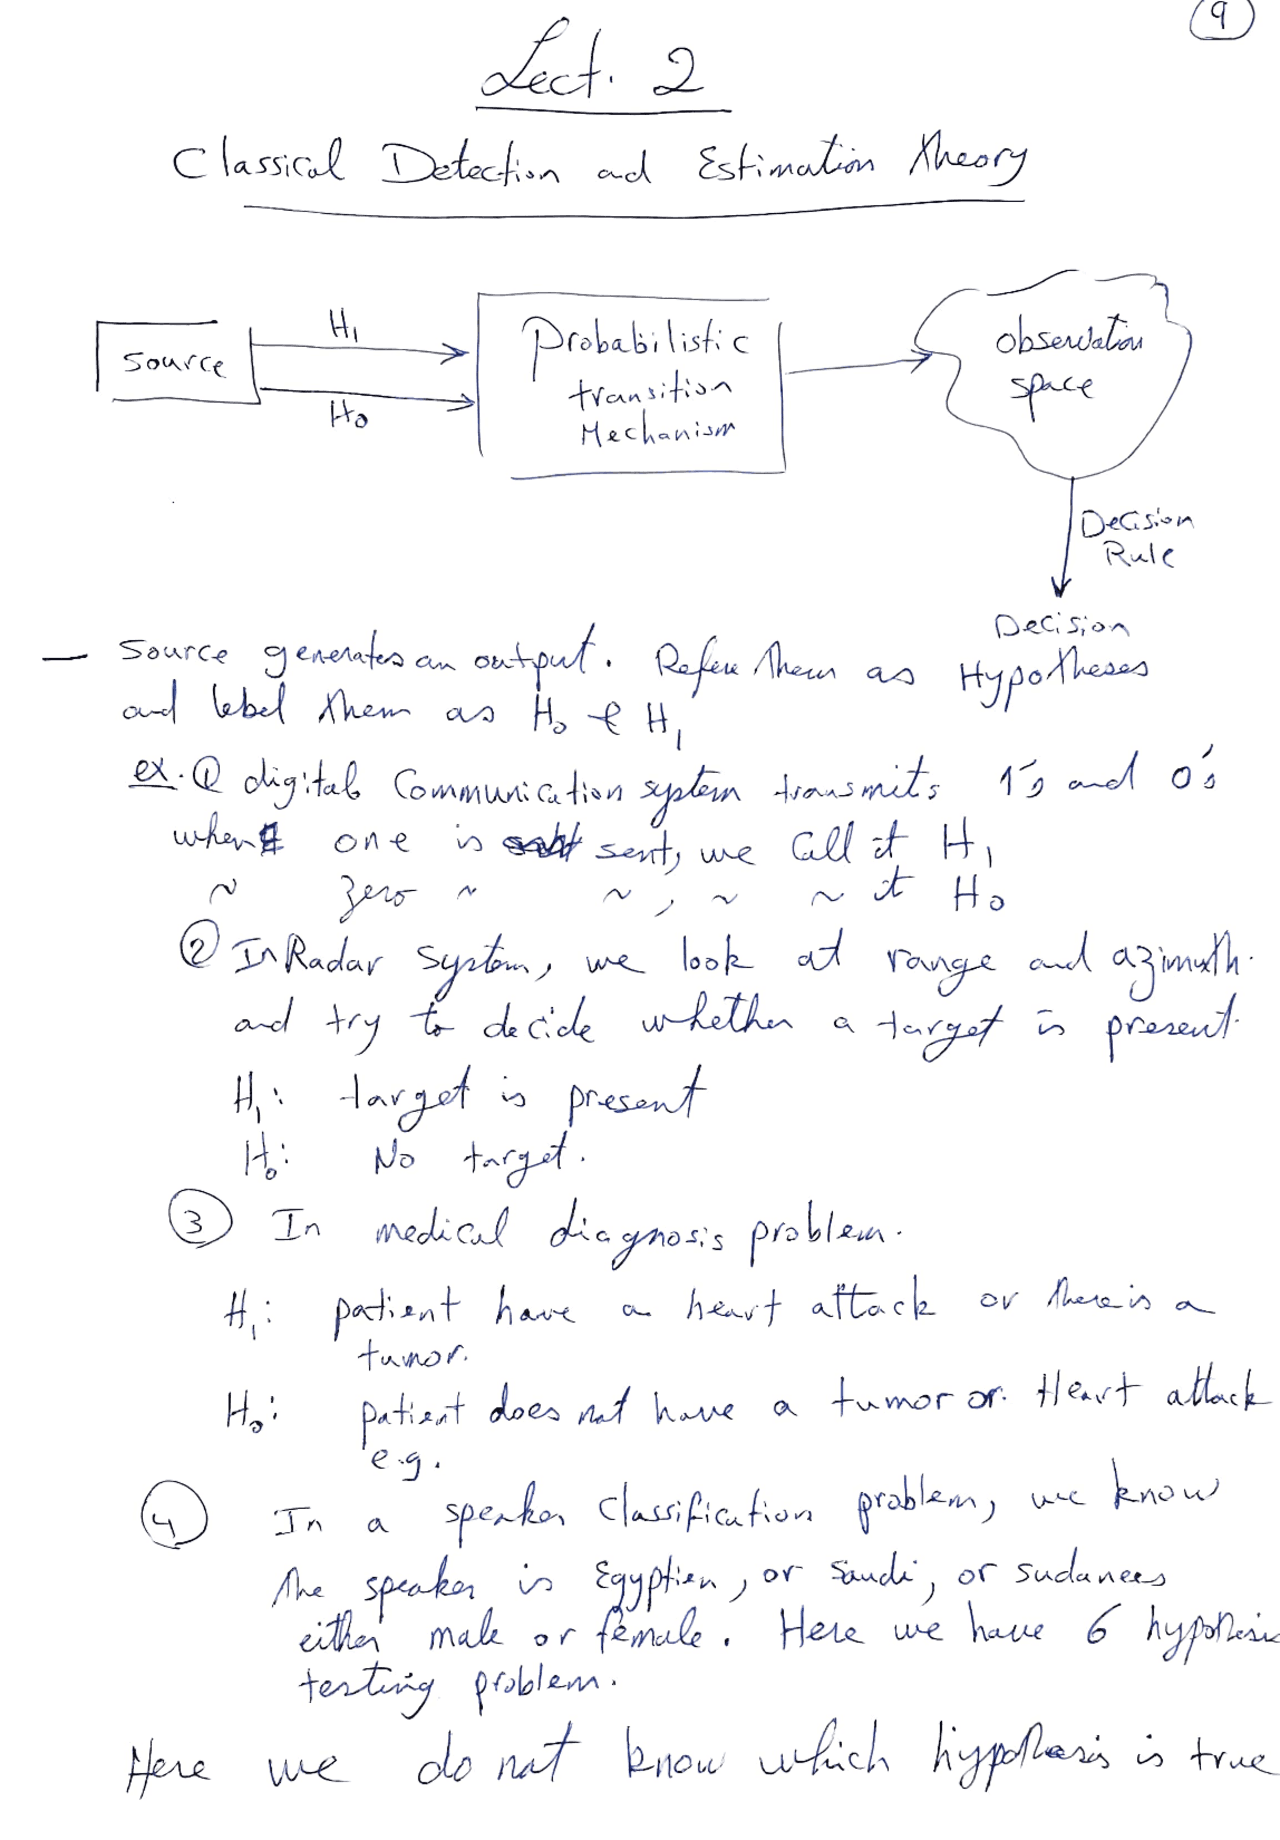 9
Lect. 2
Classical Detection and Estimation theory
H₁
Source
H₀
Probabilistic
transition
Mechanism
observation
space
Decision
Rule
Decision
— Source generates an output. Refer them as Hypotheses
and label them as H₀ & H₁
ex. ① digital Communication system transmits 1's and 0's
when one is sent, we Call it H₁
~ zero ~ ~, ~ ~ it H₀
② In Radar system, we look at range and azimuth.
and try to decide whether a target is present.
H₁: target is present
H₀: No target.
③ In medical diagnosis problem.
H₁: patient have a heart attack or there is a
tumor.
H₀: patient does not have a tumor or. Heart attack
e.g.
④ In a speaker Classification problem, we know
the speaker is Egyptien, or Saudi, or sudanees
either male or female. Here we have 6 hypothesis
testing problem.
Here we do not know which hypothesis is true